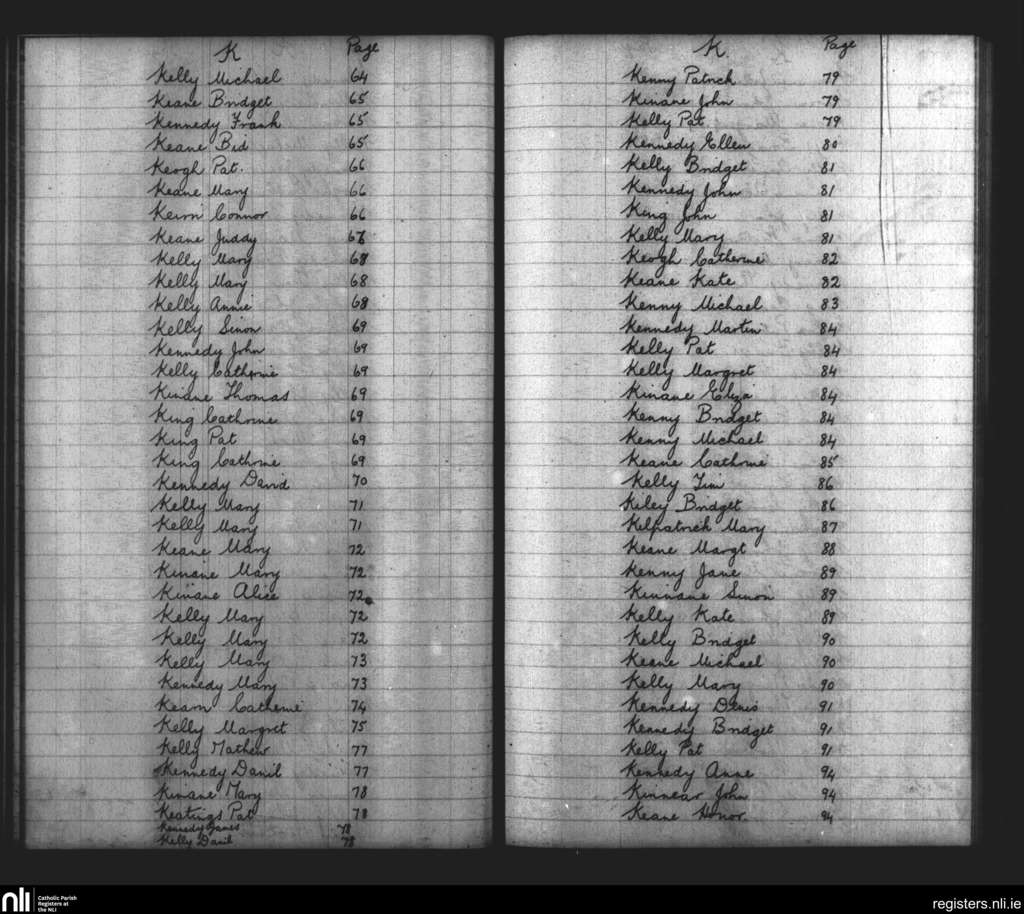 K Page
Kelly Michael 64
Keane Bridget 65
Kennedy Frank 65
Keane Bid 65
Keogh Pat. 66
Keane Mary 66
Connor 66
Keane Juddy 67
Kelly Mary 68
Kelly Mary 68
Kelly Annie 68
Kelly Simon 69
Kennedy John 69
Kelly Cathrine 69
Kinane Thomas 69
King Cathrine 69
King Pat 69
King Cathrine 69
Kennedy David 70
Kelly Mary 71
Kelly Mary 71
Keane Mary 72
Kinane Mary 72
Kinane Alice 72
Kelly Mary 72
Kelly Mary 72
Kelly Mary 73
Kennedy Mary 73
Kearn Catherine 74
Kelly Margret 75
Kelly Mathew 77
Kennedy Danil 77
Kinane Mary 78
Keatings Pat 78
Kennedy James 78
Kelly Danil 78
K Page
Kenny Patrick 79
Kinane John 79
Kelly Pat 79
Kennedy Ellen 80
Kelly Bridget 81
Kennedy John 81
King John 81
Kelly Mary 81
Keogh Catherine 82
Keane Kate 82
Kenny Michael 83
Kennedy Martin 84
Kelly Pat 84
Kelly Margret 84
Kinane Eliza 84
Kenny Bridget 84
Kenny Michael 84
Keane Cathrine 85
Kelly Tim 86
Kiley Bridget 86
Kilpatrick Mary 87
Keane Margt 88
Kenny Jane 89
Kinnane Simon 89
Kelly Kate 89
Kelly Bridget 90
Keane Michael 90
Kelly Mary 90
Kennedy Denis 91
Kennedy Bridget 91
Kelly Pat 91
Kennedy Anne 94
Kinnear John 94
Keane Honor. 94
nli Catholic Parish
Registers at
the NLI
registers.nli.ie